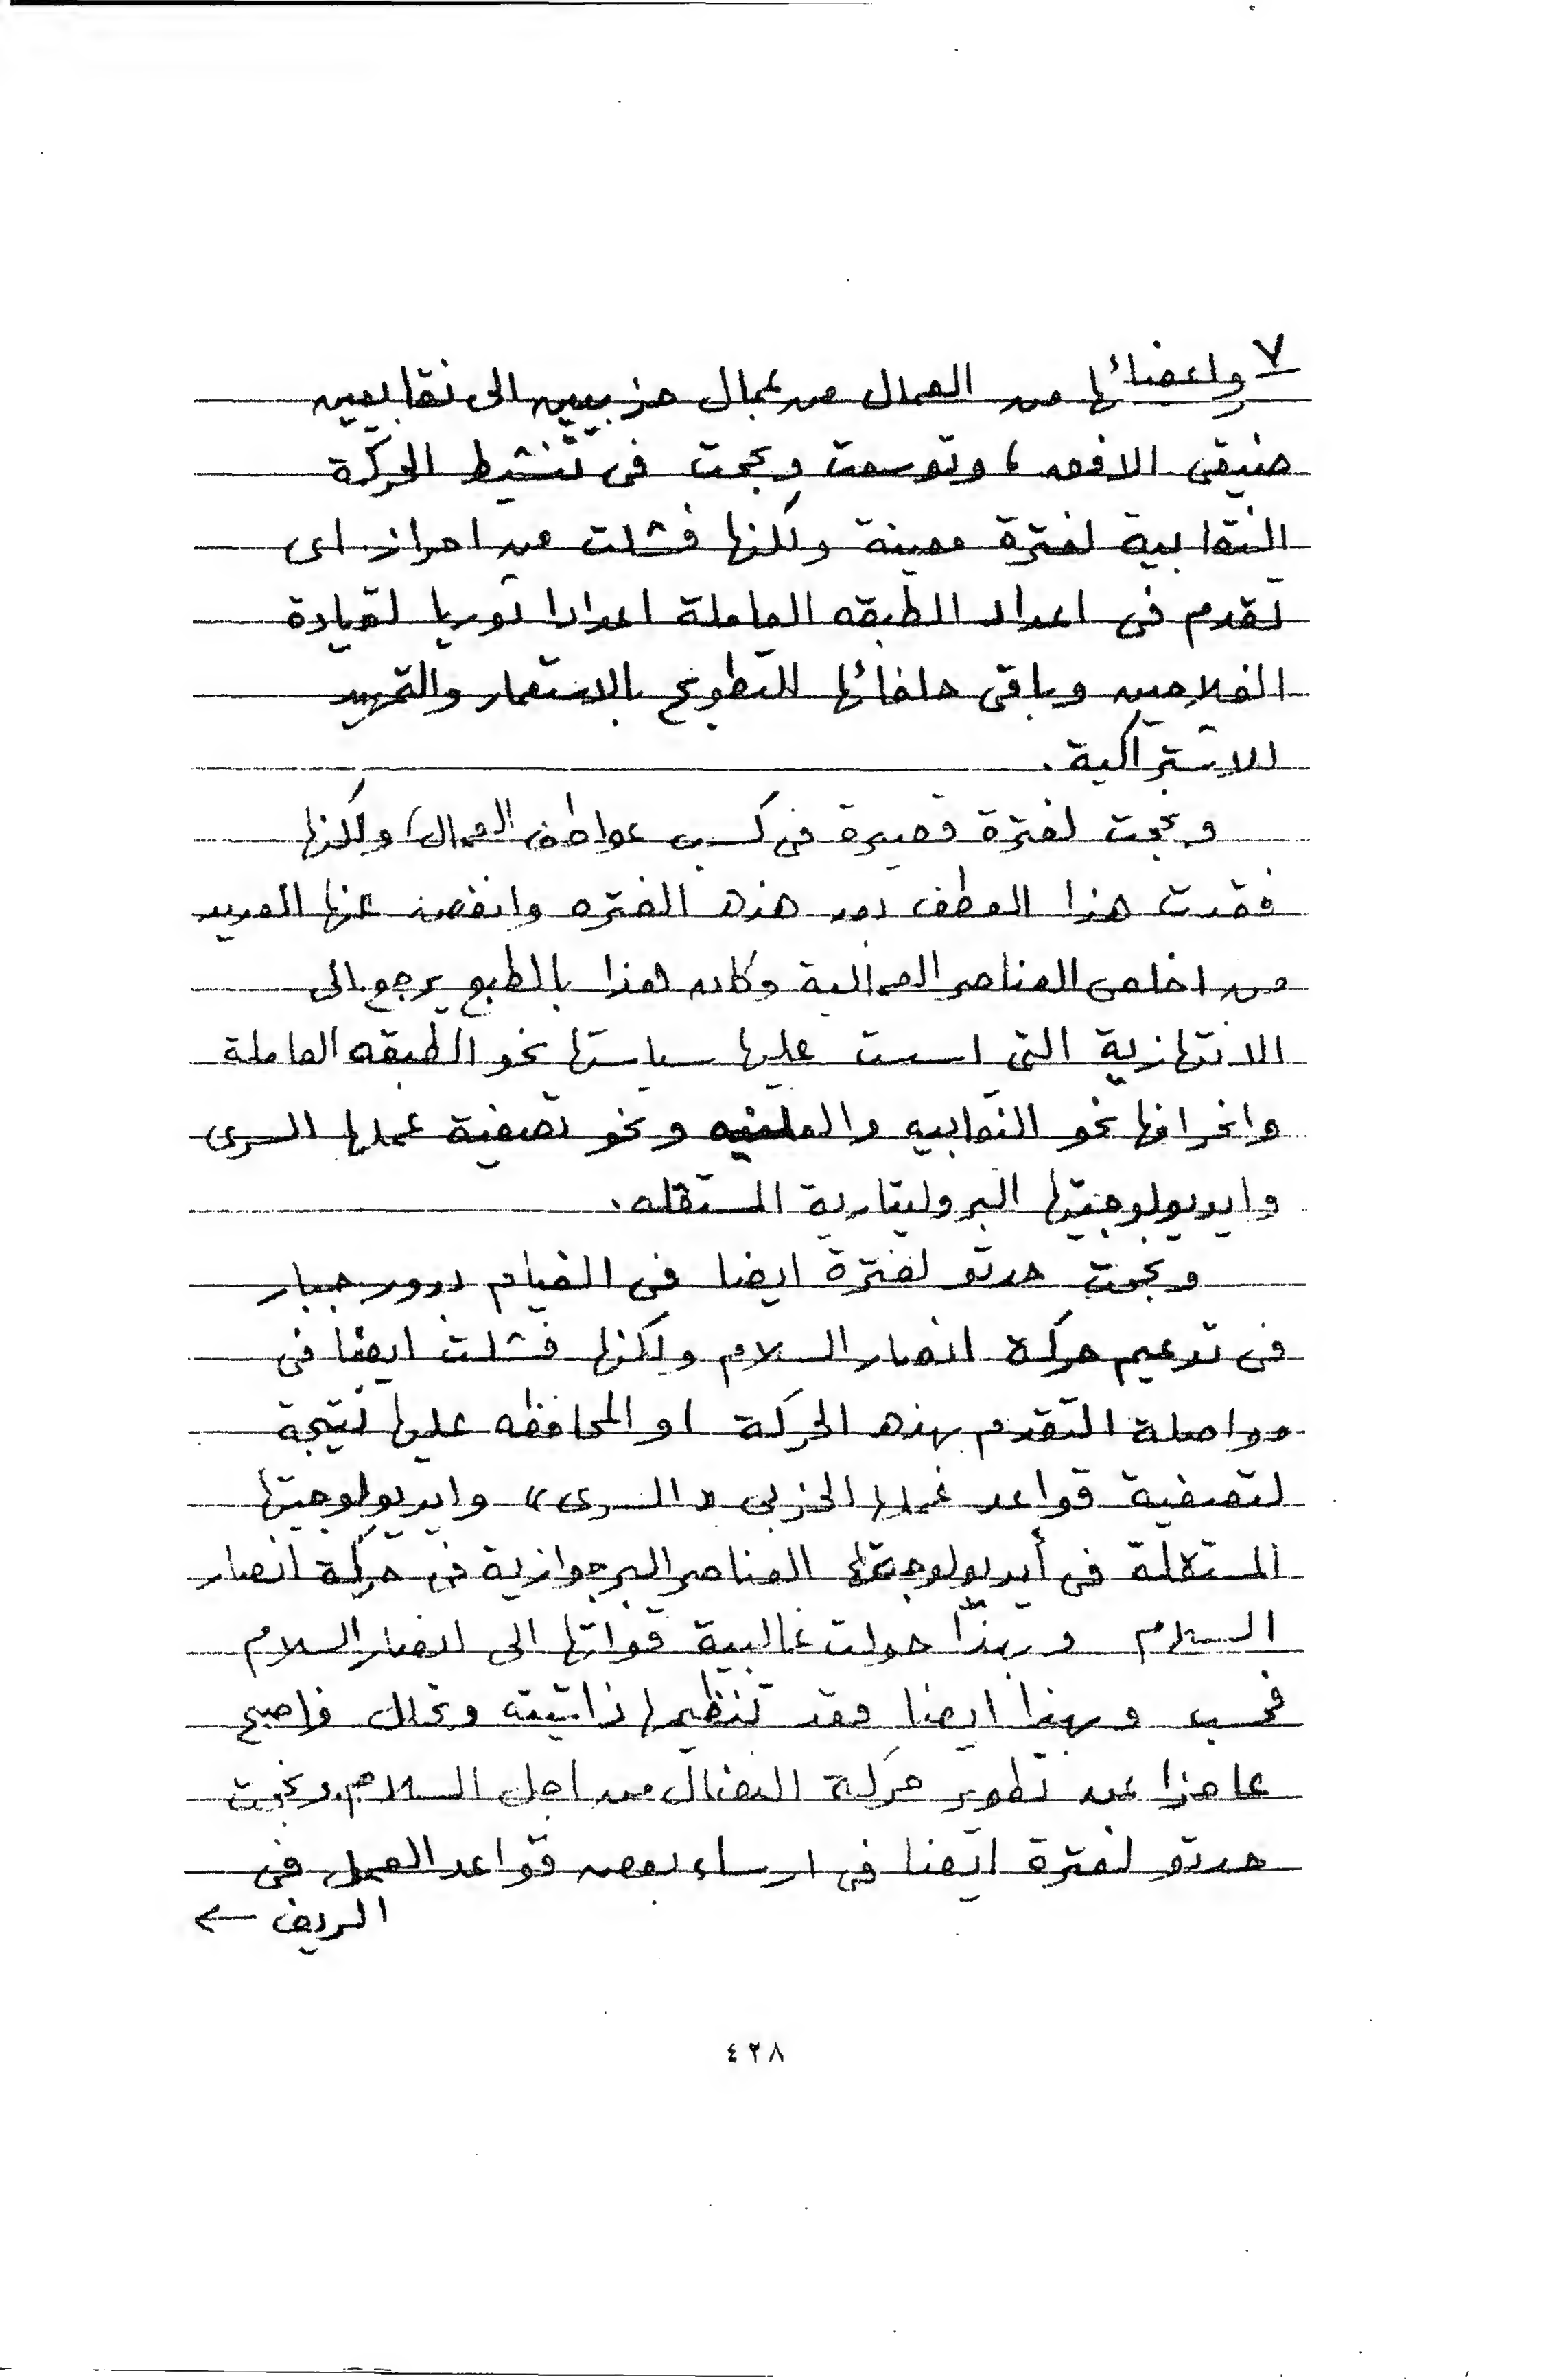 ٧
واعضائها من العمال من عمال حزبيين الى نقابيين
ضيقى الافق ، وتوسعت ونجحت فى تنشيط الحركة
النقابية لفترة معينة ولكنها فشلت عن احراز اى
تقدم فى اعداد الطبقه العاملة اعدادا ثوريا لقيادة
الفلاحين وباقى حلفائها للتطويح بالاستعمار والتمهيد
للاشتراكية .
ونجحت لفترة قصيرة فى كسب عواطف العمال ولكنها
فقدت هذا العطف بعد هذه الفتره وانفض عنها العديد
من اخلص العناصر العمالية وكان هذا بالطبع يرجع الى
الانتهازية التى اسست عليها سياستها نحو الطبقه العاملة
وانحرافها نحو النقابيه والعلنيه ونحو تصفية عملها السرى
وايديولوجيتها البروليتارية المستقله .
ونجحت حدتو لفترة ايضا فى القيام بدور جبار
فى تدعيم حركة انصار السلام ولكنها فشلت ايضا فى
مواصلة التقدم بهذه الحركة او المحافظه عليها نتيجة
لتصفية قواعد عملها الحزبى « السرى » وايديولوجيتها
المستقلة فى أيديولوجية العناصر البرجوازية فى حركة انصار
السلام وبهذا حولت غالبية قواتها الى انصار السلام
فحسب وبهذا ايضا فقد تنظيمها ذاتيته وتحلل واصبح
عاجزا عن تطوير حركة النضال من اجل السلام. ونجحت
حدتو لفترة ايضا فى ارساء بعض قواعد العمل فى
الريف ←
٤٢٨